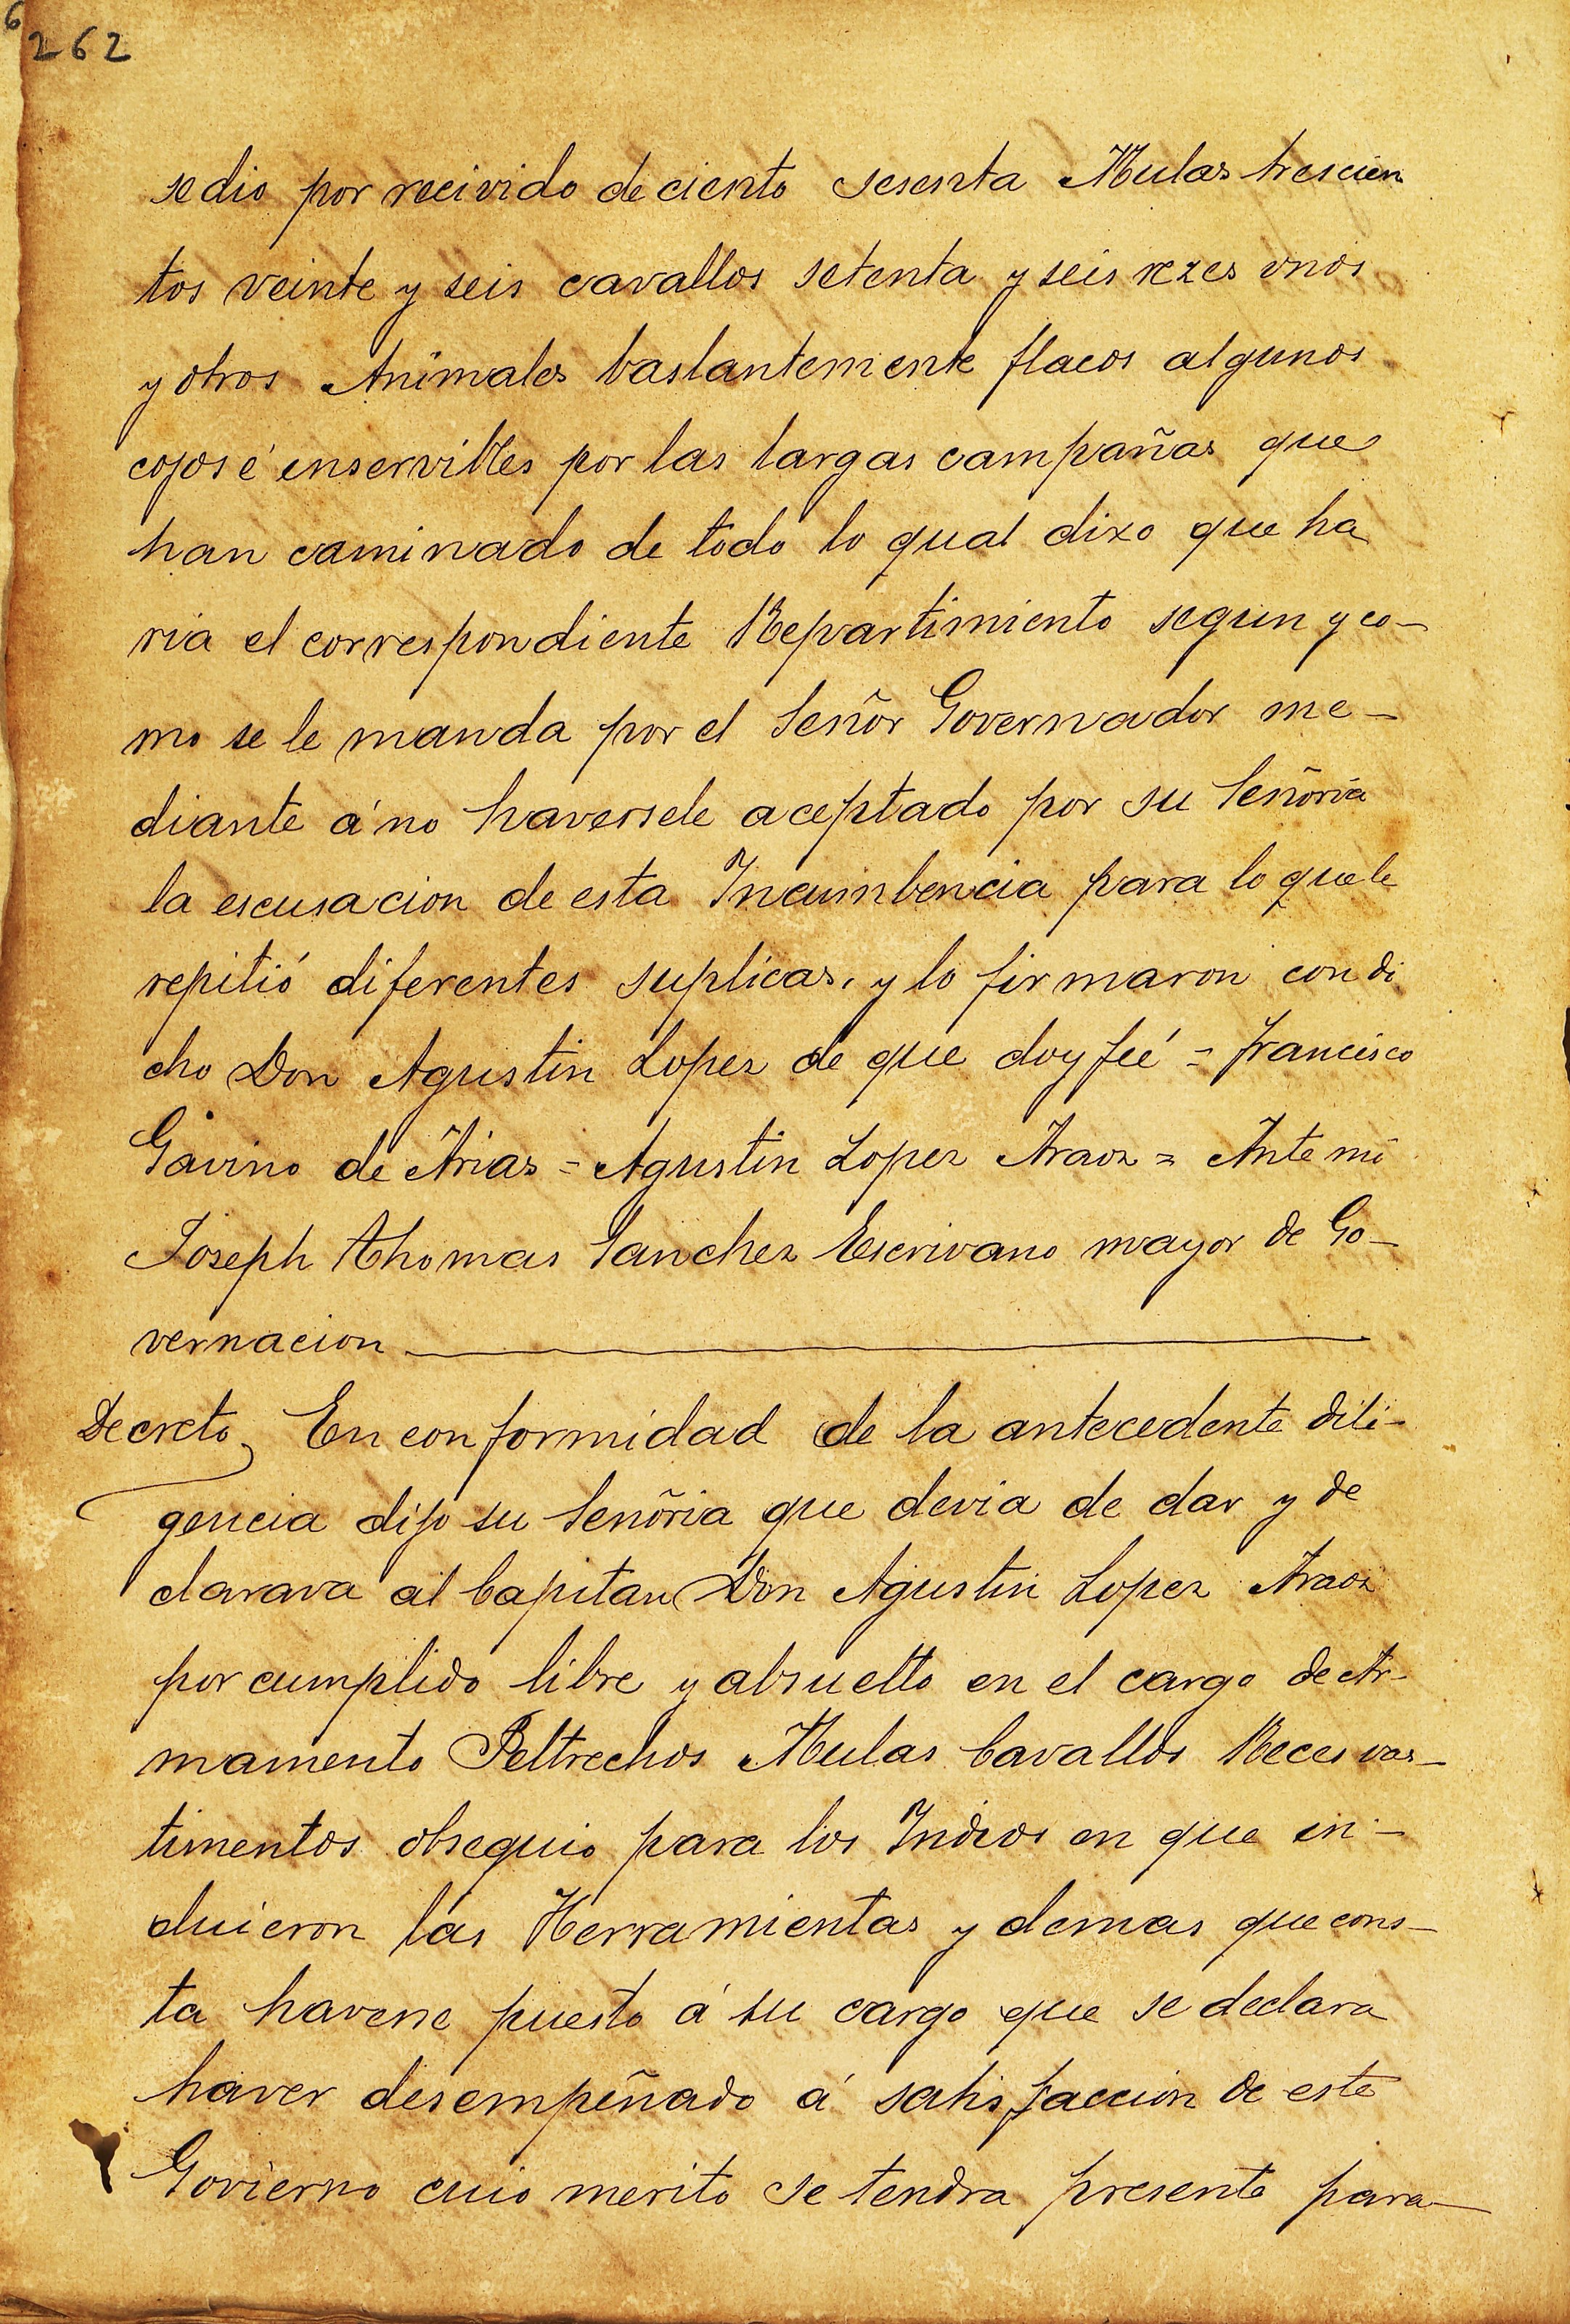 6
262
se dio por recivido de ciento sesenta Mulas trescien
tos veinte y seis cavallos setenta y seis rezes unos
y otros Animales bastantemente flacos algunos
cojos é inservibles por las largas campañas que
han caminado de todo lo qual dixo que ha
ria el correspondiente Repartimiento segun y co-
mo se le manda por el Señor Governador me-
diante á no haversele aceptado por su Señoria
la escusacion de esta Incumbencia para lo que le
repitió diferentes suplicas, y lo firmaron con di
cho Don Agustin Lopez de que doy feé = Francisco
Gavino de Arias = Agustin Lopez Araoz = Ante mi
Joseph Thomas Sanchez Escrivano mayor de Go-
vernacion
Decreto, En conformidad de la antecedente dili-
gencia dijo su Señoria que devia de dar y de
clarava al Capitan Don Agustin Lopez Araoz
por cumplido libre y absuelto en el cargo de Ar-
mamento Peltrechos Mulas Cavallos Reces vas-
timentos obsequio para los Indios en que in-
cluieron las Herramientas y demas que cons-
ta haverse puesto á su cargo que se declara
haver desempeñado á satisfaccion de este
Govierno cuio merito se tendra presente para